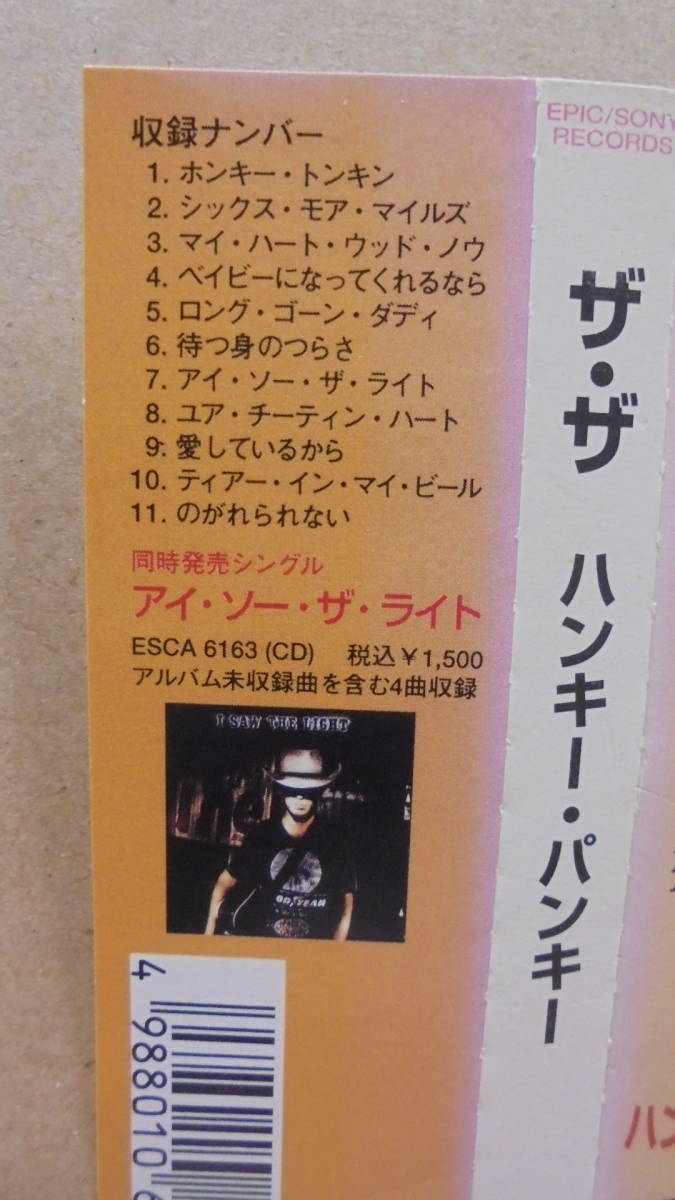 収録ナンバー
1. ホンキー・トンキン
2. シックス・モア・マイルズ
3. マイ・ハート・ウッド・ノウ
4. ベイビーになってくれるなら
5. ロング・ゴーン・ダディ
6. 待つ身のつらさ
7. アイ・ソー・ザ・ライト
8. ユア・チーティン・ハート
9. 愛しているから
10. ティアー・イン・マイ・ビール
11. のがれられない
同時発売シングル
アイ・ソー・ザ・ライト
ESCA 6163 (CD) 税込￥1,500
アルバム未収録曲を含む4曲収録
I SAW THE LIGHT
4 988010 6
EPIC/SONY
RECORDS
ザ・ザ ハンキー・パンキー
ハン